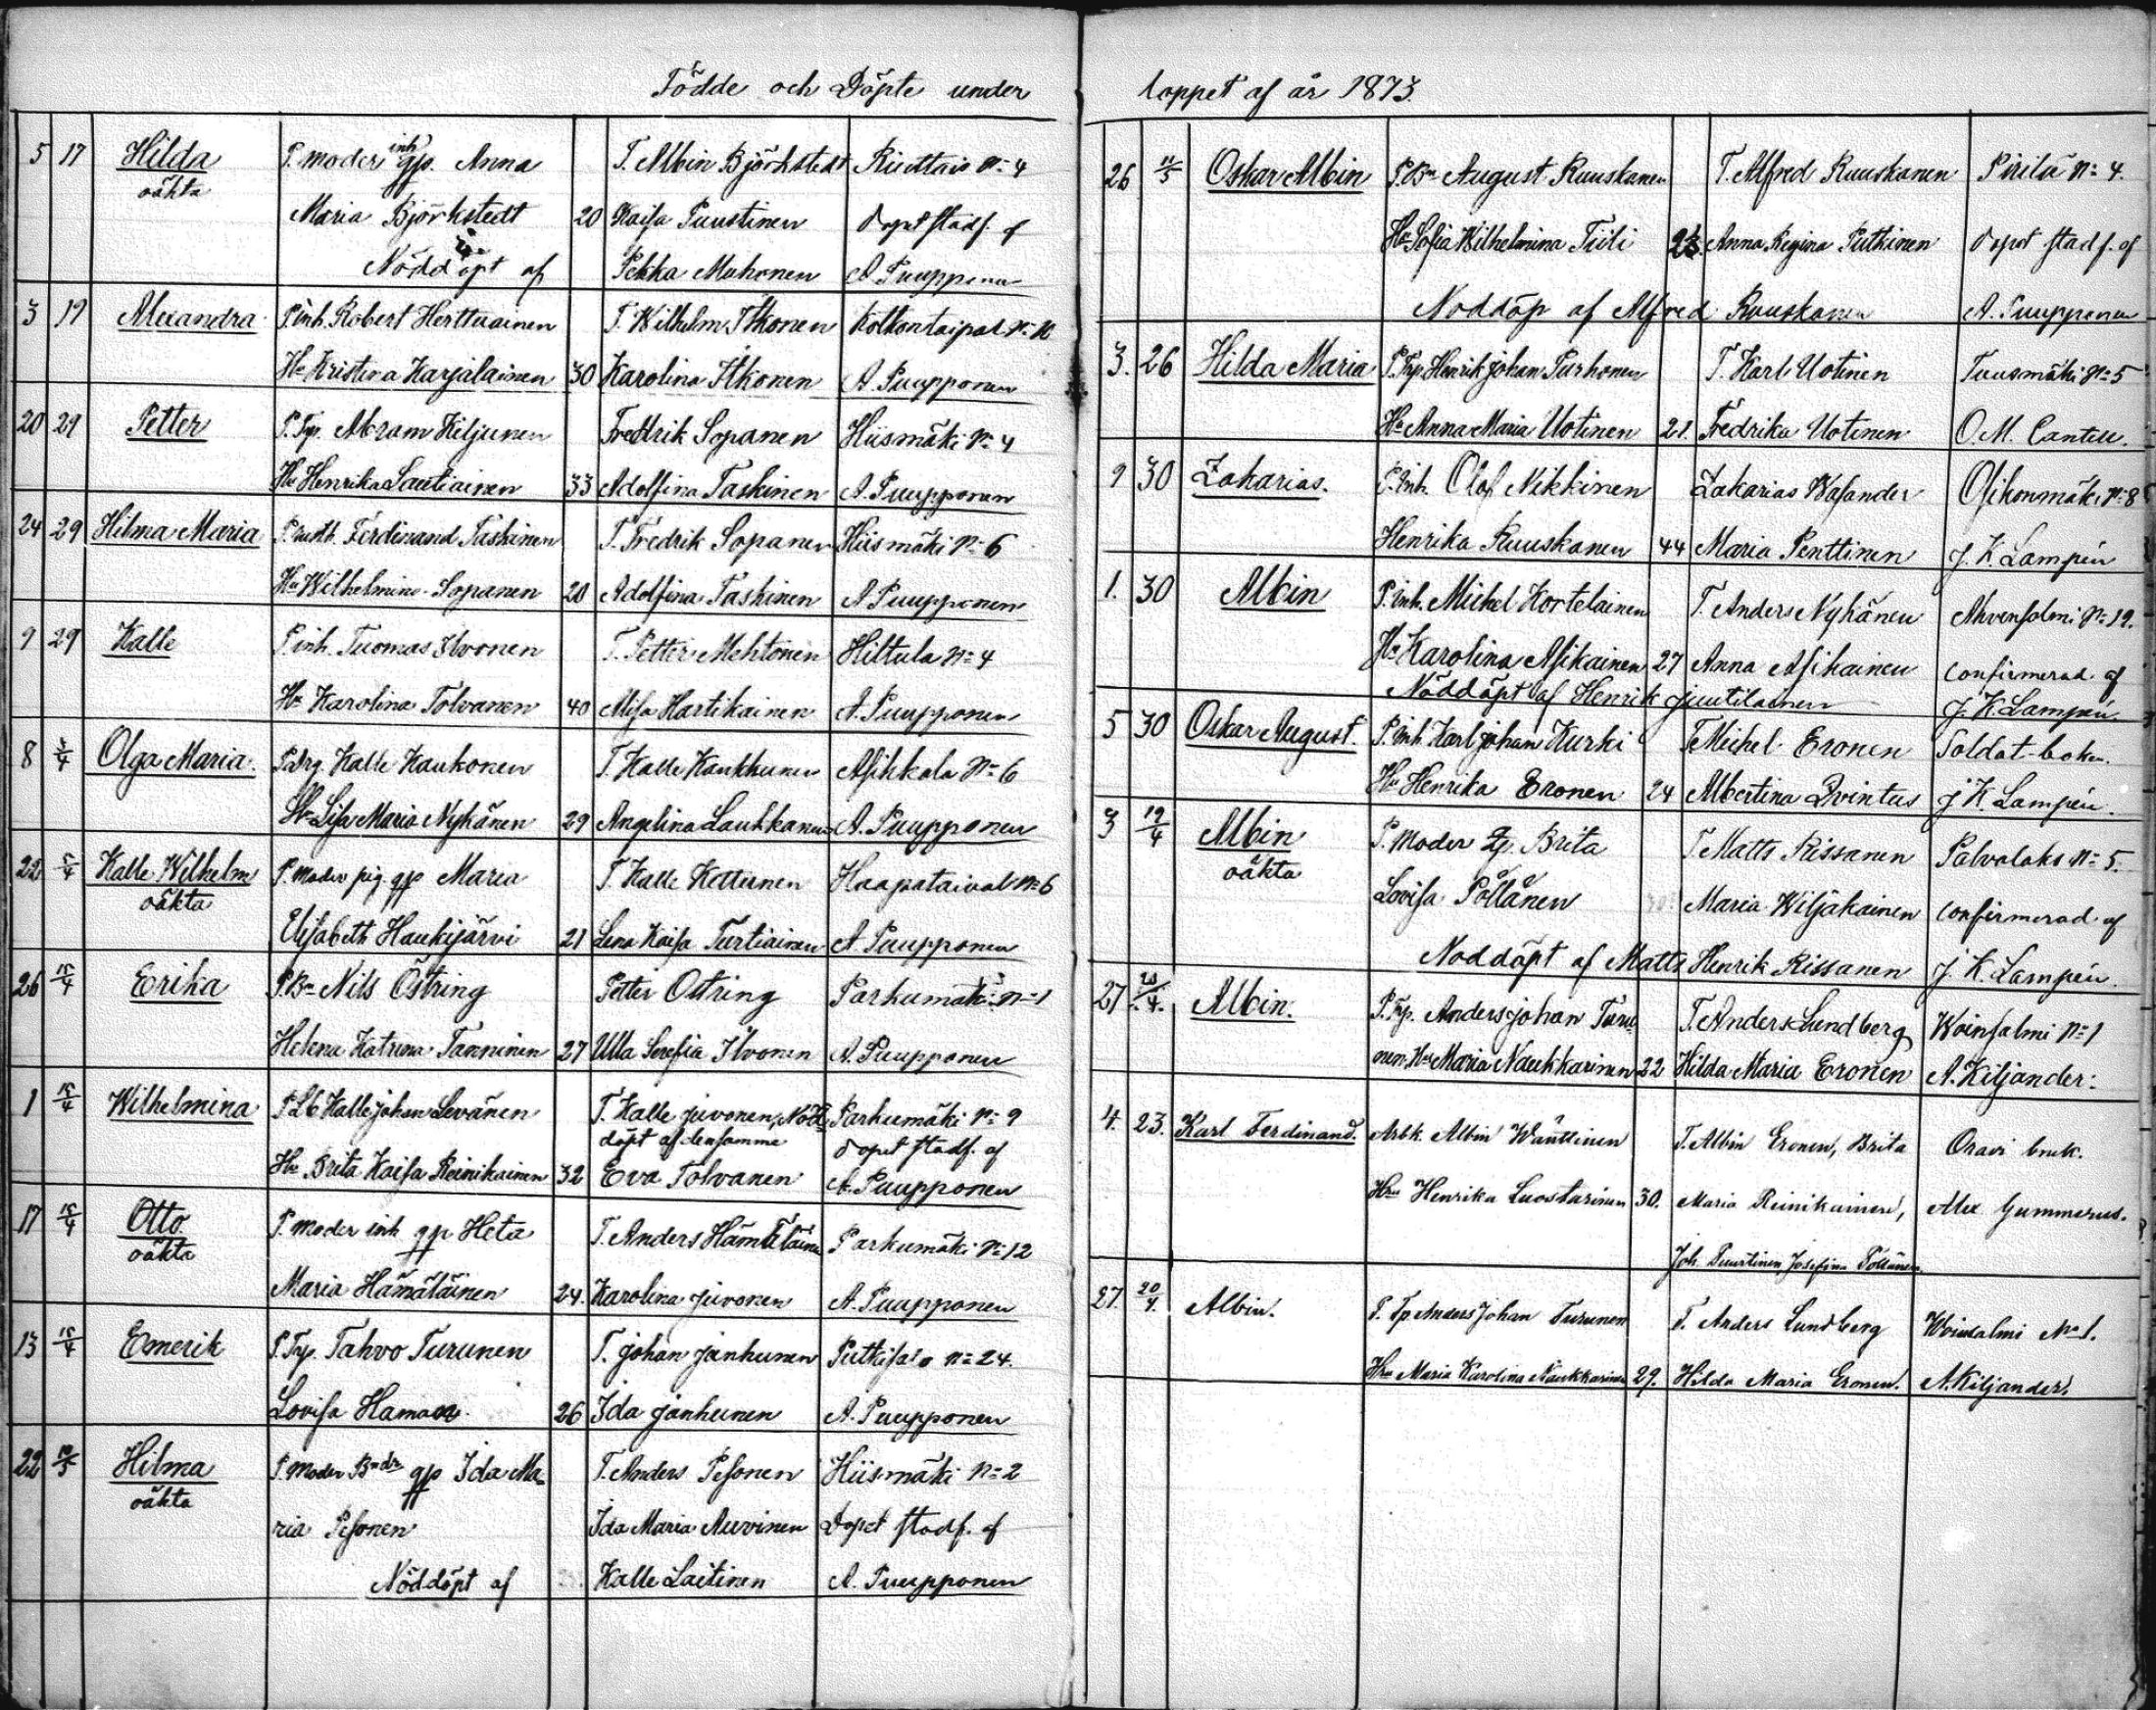 Födde och Döpte under
5 17 Hilda P. moder inh gp. Anna T. Albin Björkstedt N: 4
oäkta Maria Björkstedt 20 Kaisa Puustinen dopet stadf. af
Nöddöpt af Pekka Muhonen A. Puupponen
3 19 Alexandra P. inh. Robert Herttuainen T. Wilhelm Itkonen Kolkontaipal N: 10
Hu Kristina Karjalainen 30 Karolina Itkonen A. Puupponen
20 29 Petter P. Trp. Abram Kiljunen Fredrik Sopanen Hiismäki N: 4
Hu Henrika Lautiainen 33 Adolfina Taskinen A. Puupponen
24 29 Hilma Maria P. Ferdinand Taskinen T. Fredrik Sopanen Hiismäki N: 6
Hu Wilhelmina Sopanen 20 Adolfina Taskinen A. Puupponen
9 29 Kalle P. inh. Tuomas Ilvonen T. Petter Mehtonen Hiltula N: 4
Hu Karolina Tolvanen 40 Alisa Hartikainen A. Puupponen
8 Olga Maria. Kalle Kaukonen T. Kalle Kaukkunen Asikkala N: 6
Hu Lisa Maria Nykänen 29 Angelina Laukkanen A. Puupponen
22 5/4 Kalle Wilhelm P. moder pig. gp Maria T. Kalle Kettunen Haapataival N: 6
oäkta Elisabeth Haukijärvi 21 Lena Kaisa Turtiainen A. Puupponen
26 15/4 Erika P. Bn Nils Östring Petter Östring Parkumäki N: 1
Helena Katrina Tanninen 27 Ulla Serefia Ilvonen A. Puupponen
1 15/4 Wilhelmina P. Lb Kalle Johan Levänen T. Kalle Juvonen, Nöd Parkumäki N: 9
döpt af densamme dopet stadf. af
Hu Brita Kaisa Reinikainen 32 Eva Tolvanen A. Puupponen
17 15/4 Otto P. moder inh gp Heta T. Anders Hämäläinen Parkumäki N: 12
oäkta Maria Hämäläinen 24. Karolina Juvonen A. Puupponen
13 15/4 Emerik P. Trp. Tahvo Turunen T. Johan Janhunen Putkisalo N: 24.
Lovisa Haman 26 Ida Janhunen A. Puupponen
22 Hilma P. Moder Bndr gp Ida Ma T. Anders Pesonen Hiismäki N: 2
oäkta ria Pesonen Ida Maria Auvinen Dopet stadf. af
Nöddöpt af Kalle Laitinen A. Puupponen
loppet af år 1873.
26 11/5 Oskar Albin P. Bn August Ruuskanen T. Alfred Ruuskanen Pirilä N: 4.
Hu Sofia Wilhelmina Tiili Anna Regina Putkinen dopet stadf. af
Nöddöp af Alfred Ruuskanen A. Puupponen
3. 26 Hilda Maria P. Trp. Henrik Johan Turhonen T. Karl Uotinen Tuusmäki N: 5
Hu Anna Maria Uotinen 21. Fredrika Uotinen O. M. Cantell.
9 30 Zakarias. P. inh. Olof Nikkinen Zakarias Wasander Osikonmäki N: 8
Henrika Ruuskanen 44 Maria Penttinen J. K. Lampén
1. 30 Albin P. inh. Mickel Kortelainen T. Anders Nykänen Ahvensalmi N: 19.
Hu Karolina Asikainen 27 Anna Asikainen confirmerad af
Nöddöpt af Henrik Juutilainen J. K. Lampén.
5 30 Oskar August. P. inh. Karl Johan Kurki T. Mickel Eronen Soldat-boken.
Hu Henrika Eronen 24 Albertina Qvintus J. K. Lampén.
3 19/4 Albin P. Moder gp. Brita T. Matts Rissanen Palvalaks N: 5.
oäkta Lovisa Pöllänen Maria Wiljakainen confirmerad af
Noddöpt af Matts Henrik Rissanen J. K. Lampén.
27 20/4. Albin. P. Trp. Anders Johan Turu T. Anders Lundberg Woinsalmi N: 1
nen. Hu Maria Naukkarinen 22 Hilda Maria Eronen A. Kiljander:
4. 23. Karl Ferdinand. Arbk. Albin Wänttinen T. Albin Eronen, Brita Oravi bruk.
Hru Henrika Luostarinen 30. Maria Reinikainen, Alex Gummerus.
Joh. Puustinen Josefina Pöllänen.
27. 20/4. Albin. P. Tp Anders Johan Turunen T. Anders Lundberg Woinsalmi No 1.
Hru Maria Karolina Naukkarinen 29. Hilda Maria Eronen. A. Kiljander.